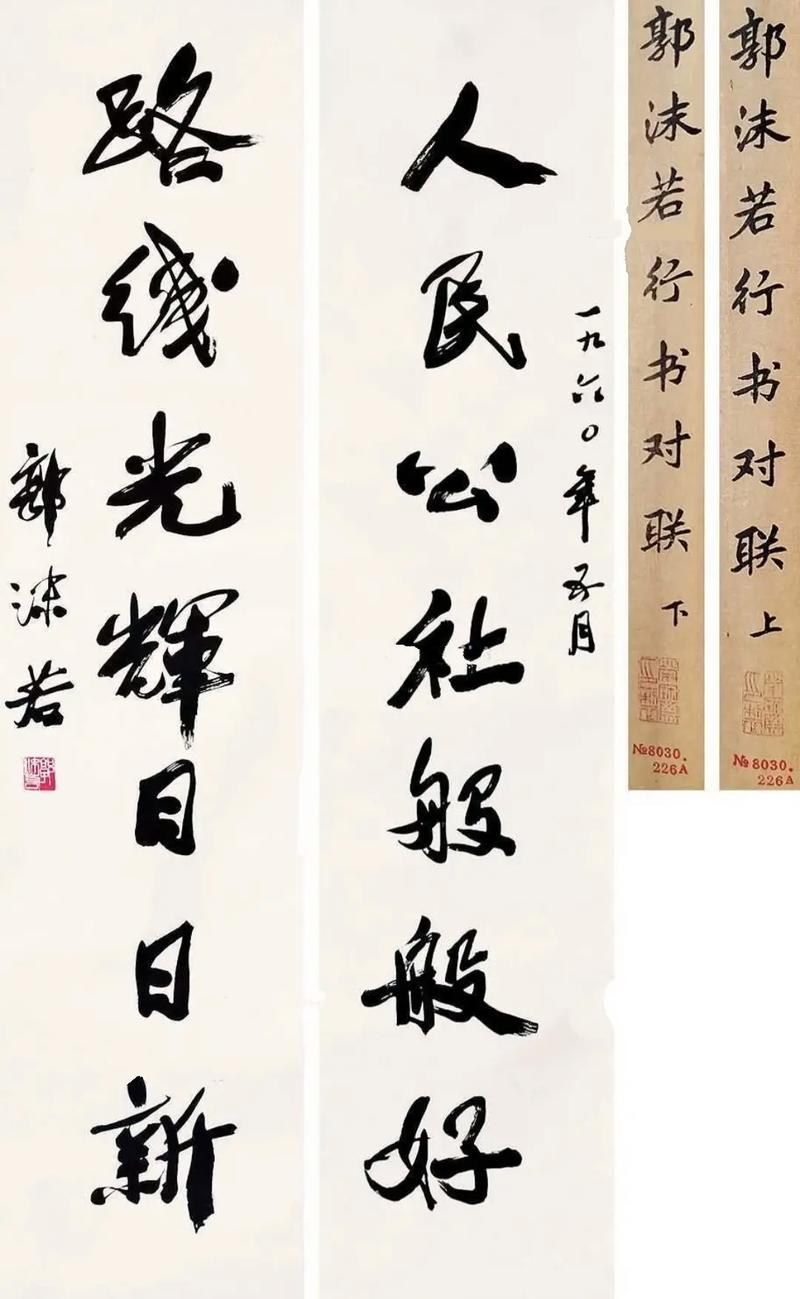 郭沫若行书对联 上
№8030.
226A
郭沫若行书对联 下
№8030.
226A
一九六〇年五月
人民公社般般好
路线光辉日日新
郭沫若